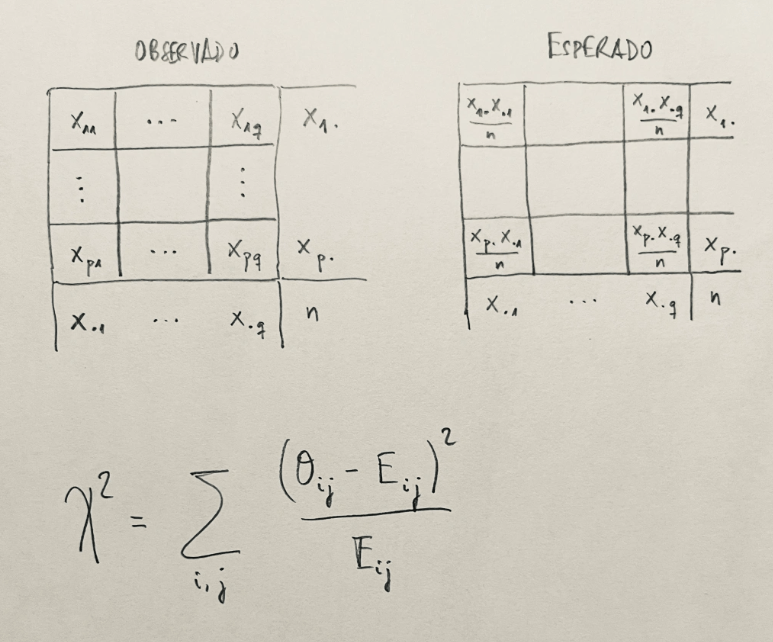 OBSERVADO
x₁₁ ... x₁q x₁.
⋮ ⋮
xp₁ ... xpq xp.
x.₁ ... x.q n
ESPERADO
x₁. x.₁ / n x₁. x.q / n x₁.
xp. x.₁ / n xp. x.q / n xp.
x.₁ ... x.q n
χ² = Σ i,j (Oij - Eij)² / Eij